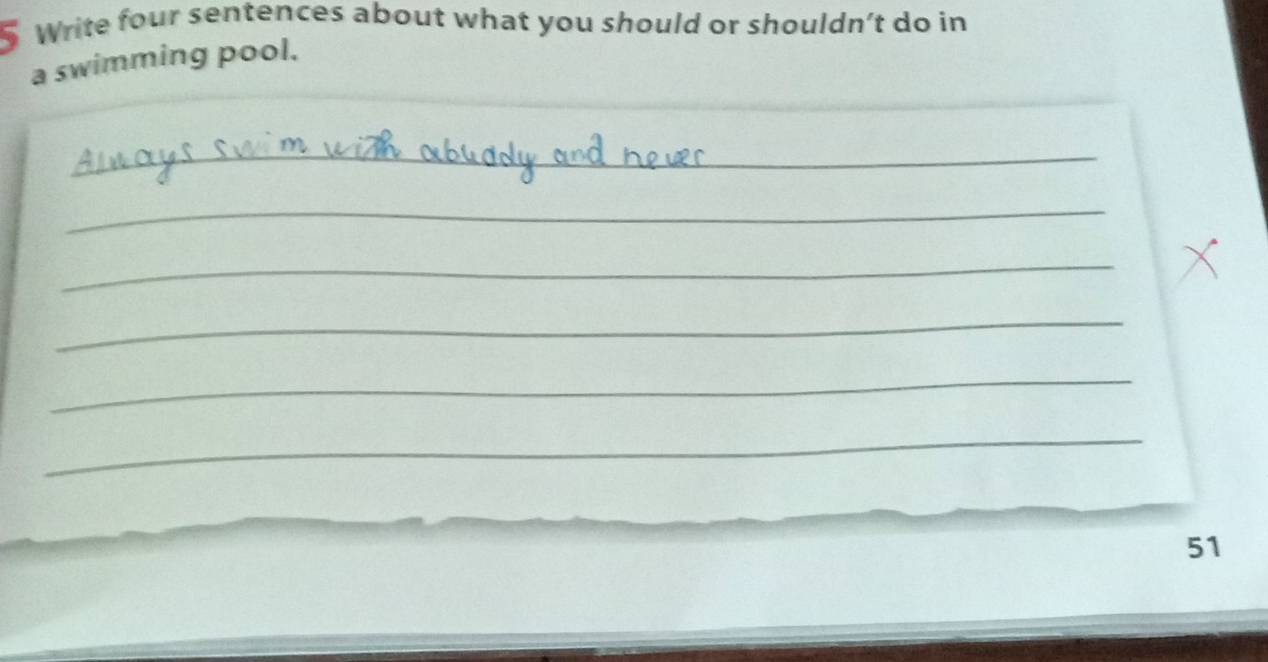 5 Write four sentences about what you should or shouldn't do in
a swimming pool.
Always swim with abuddy and never
51